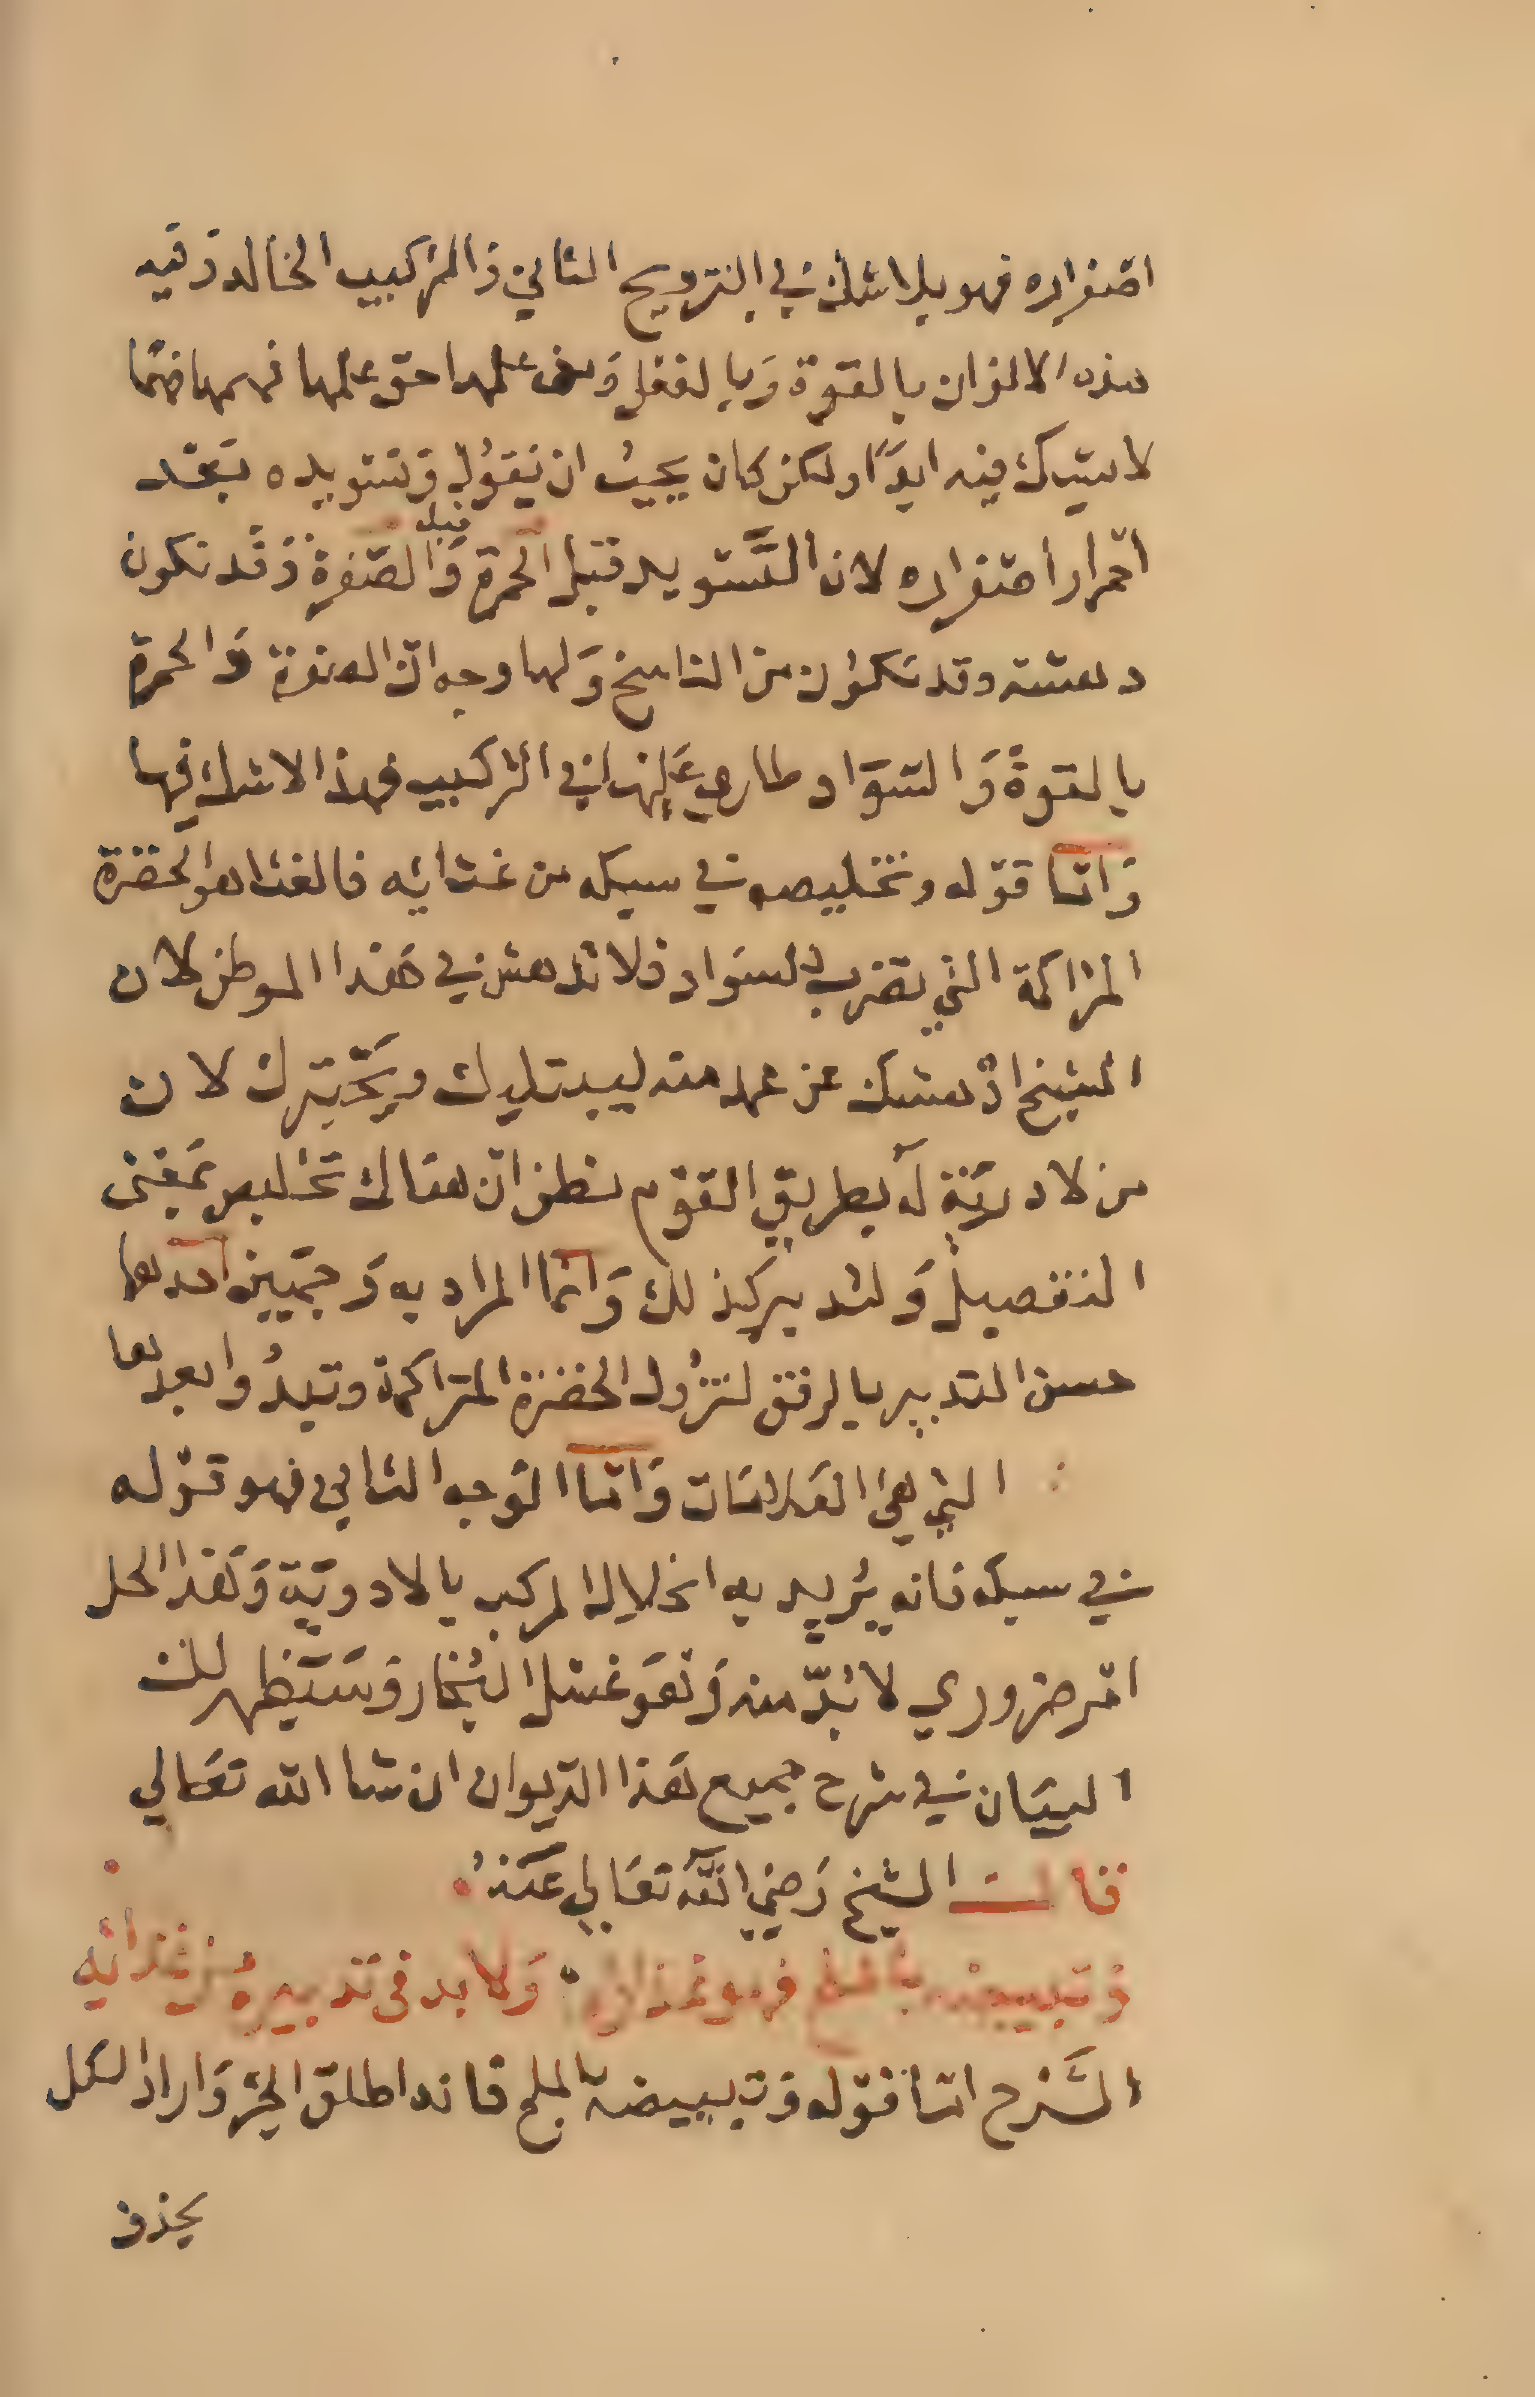 اصفراره فهو بلا شك في التزويج الثاني والمركب الخالد وفيه
هذه الالوان بالقوة وبالفعل علمها حق علمها فهمها
لا يشك فيه ابدًا ولكن كان يجب ان يقول وتسويده بعد
احمرار اصفراره لان التسويد قبل الحمرة والصفرة وقد تكون
دهشته وقد تكون من الناسخ ولها وجه ان الصفرة والحمرة
بالقوة والسواد طاري عليها في التركيب فهذا لا شك فيها
واما قوله وتخليصه في سبكه من غشائه فالغشا هو الخضرة
المتراكمة التي تضرب بالسواد فلا تدهش في هذا الموطن لان
الشيخ ادهشك عن عمد منه ليبتليك ويختبرك لان
من لا دربة له بطريق القوم يظن ان هناك تخليص بمعنى
التفصيل وليس كذلك وانما المراد به وجهين احدهما
حسن التدبير بالرفق لتزول الخضرة المتراكمة وتبدوا بعدها
التي هي العلامات واما الوجه الثاني فهو قوله
في سبكه فانه يريد به انحلال المركب بالادوية وهذا الحل
امر ضروري لا بد منه وهو غسل البخار وسيظهر لك
البيان في شرح جميع هذا الديوان ان شا الله تعالي
قال الشيخ رضي الله تعالي عنه
وتبييضه بالملح فهو غذاؤه ولا بد في تدبيره من غذائه
الشرح اما قوله وتبييضه بالملح فانه اطلق الجزء واراد الكل
بحذف